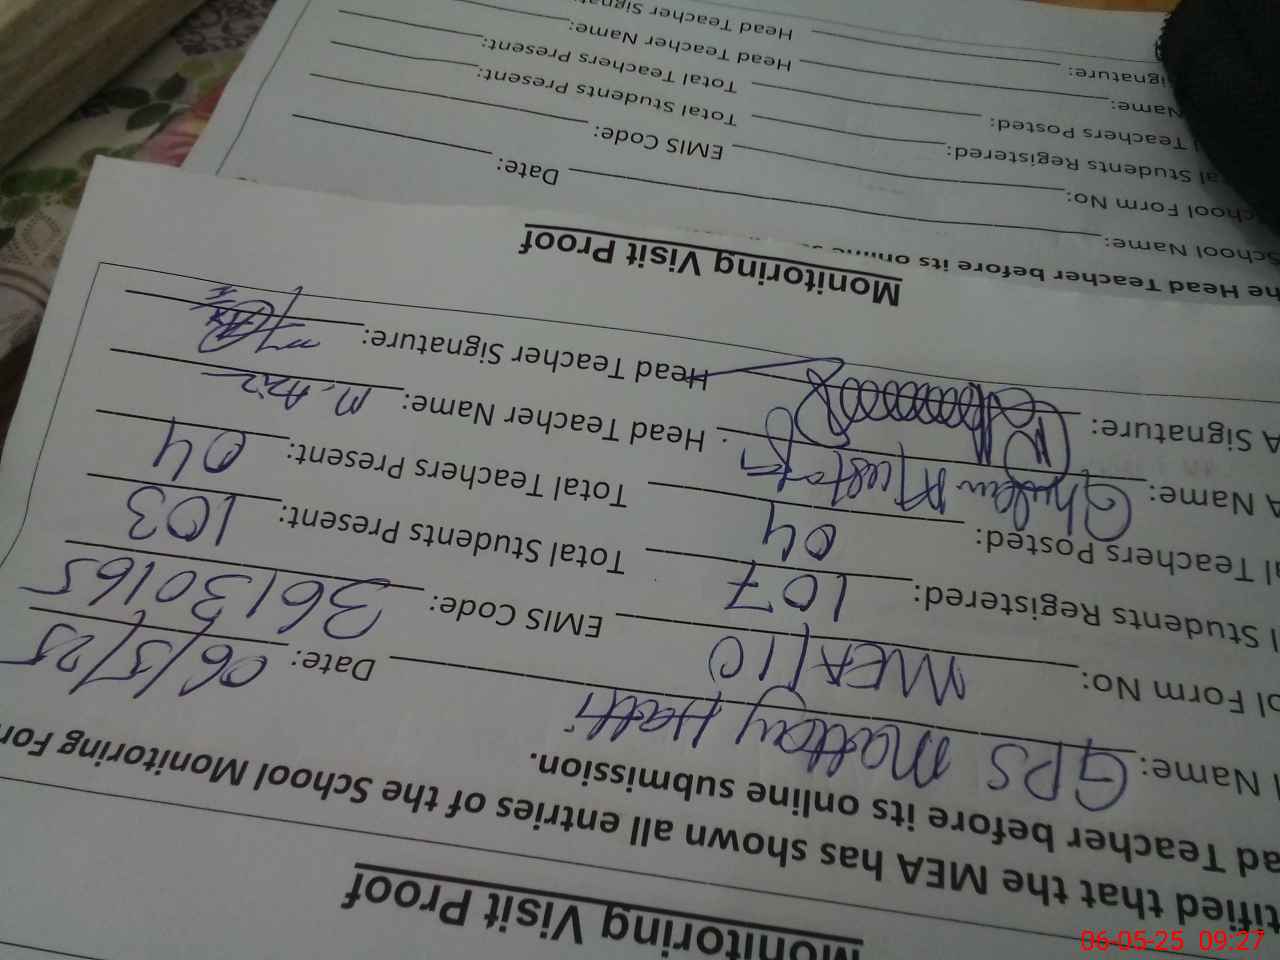 Monitoring Visit Proof
tified that the MEA has shown all entries of the School Monitoring For
ad Teacher before its online submission.
l Name: GPS Mattay Hatti Date: 06/5/25
ol Form No: MEA110 EMIS Code: 36130165
l Students Registered: 107 Total Students Present: 103
al Teachers Posted: 04 Total Teachers Present: 04
A Name: Ghulam Mustafa Head Teacher Name: M. Aziz
A Signature: Head Teacher Signature:
Monitoring Visit Proof
he Head Teacher before its online
School Name: Date:
chool Form No: EMIS Code:
al Students Registered: Total Students Present:
l Teachers Posted: Total Teachers Present:
Name: Head Teacher Name:
ignature: Head Teacher Signat
06-05-25 09:27